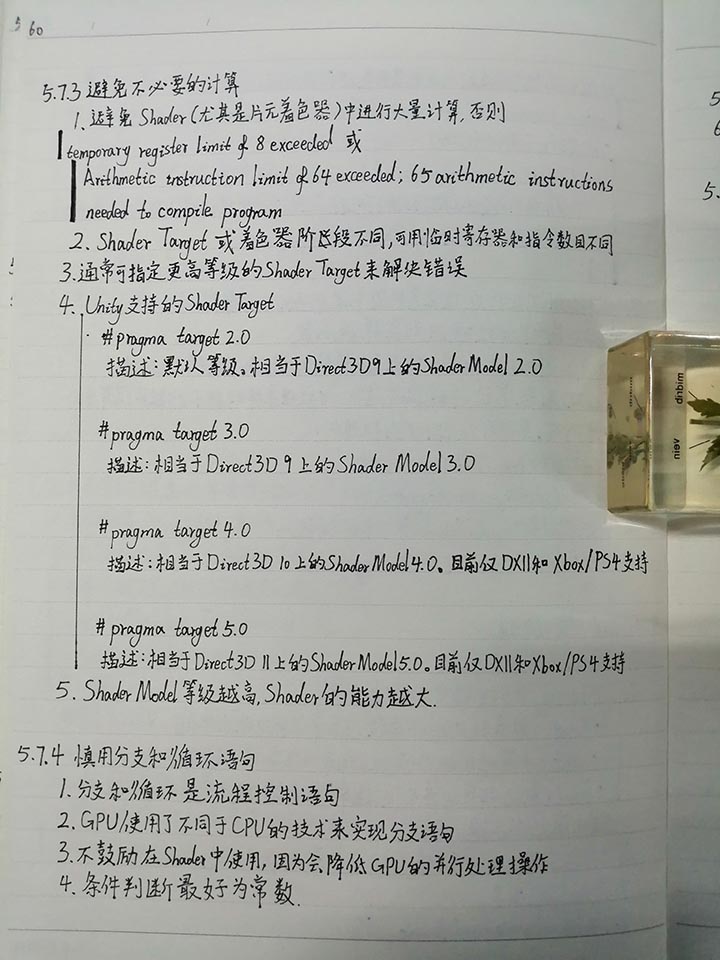 60
5.7.3 避免不必要的计算
1. 避免 Shader (尤其是片元着色器) 中进行大量计算, 否则
temporary register limit of 8 exceeded 或
Arithmetic instruction limit of 64 exceeded; 65 arithmetic instructions
needed to compile program
2. Shader Target 或着色器阶段不同, 可用临时寄存器和指令数目不同
3. 通常可指定更高等级的 Shader Target 来解决错误
4. Unity支持的 Shader Target
#pragma target 2.0
描述: 默认等级。相当于Direct3D9上的Shader Model 2.0
#pragma target 3.0
描述: 相当于Direct3D 9 上的Shader Model 3.0
#pragma target 4.0
描述: 相当于Direct3D 10 上的Shader Model 4.0。目前仅 DX11和 Xbox/PS4支持
#pragma target 5.0
描述: 相当于Direct3D 11上的Shader Model 5.0。目前仅DX11和Xbox/PS4支持
5. Shader Model 等级越高, Shader 的能力越大.
5.7.4 慎用分支和循环语句
1. 分支和循环是流程控制语句
2. GPU使用了不同于CPU的技术来实现分支语句
3. 不鼓励在Shader中使用, 因为会降低GPU的并行处理操作
4. 条件判断最好为常数.